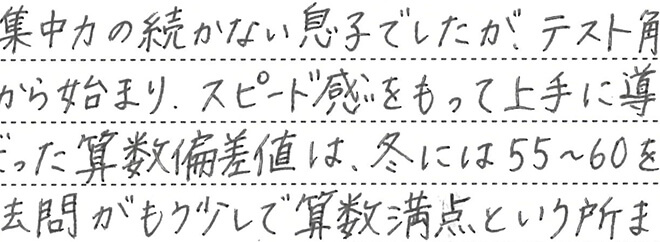 集中力の続かない息子でしたが、テスト角
から始まり、スピード感をもって上手に導
だった算数偏差値は、冬には55～60を
去問がもう少しで算数満点という所ま